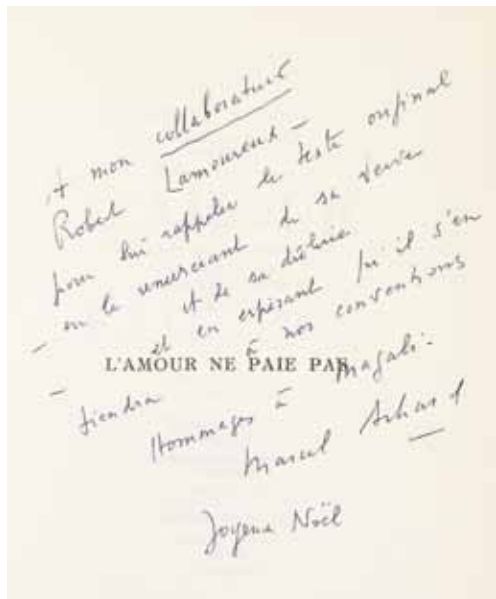 A mon collaborateur
Robert Lamoureux –
pour lui rappeler le texte original
– en le remerciant de sa verve
et de sa drôlerie
et en espérant qu'il s'en
– tiendra à nos conventions
L'AMOUR NE PAIE PAS
Hommages à Magali.
Marcel Achard
Joyeux Noël